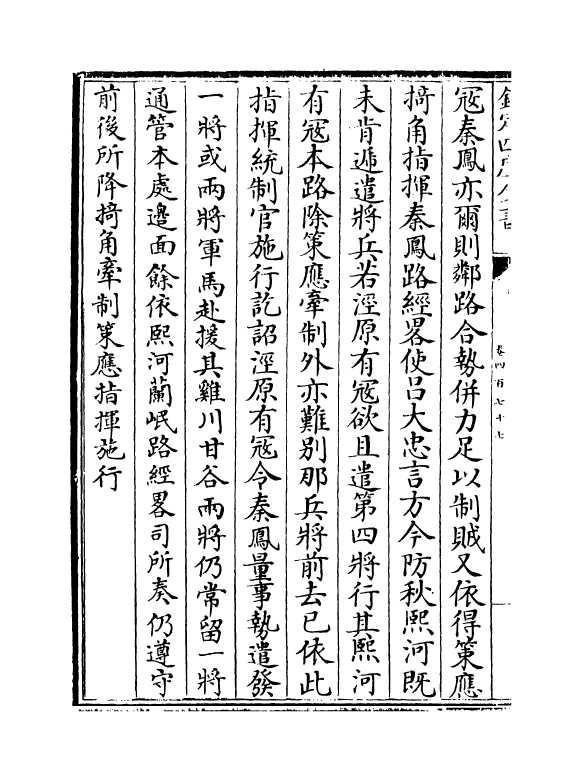 欽定四庫全書
卷四百七十七
冦秦鳳亦爾則鄰路合勢併力足以制賊又依得策應
掎角指揮秦鳳路經畧使吕大忠言方今防秋熙河既
未肯遞遣將兵若涇原有冦欲且遣第四將行其熙河
有冦本路除策應牽制外亦難别那兵將前去已依此
指揮統制官施行訖詔涇原有冦令秦鳳量事勢遣發
一將或兩將軍馬赴援其雞川甘谷兩將仍常留一將
通管本處邊面餘依熙河蘭岷路經畧司所奏仍遵守
前後所降掎角牽制策應指揮施行